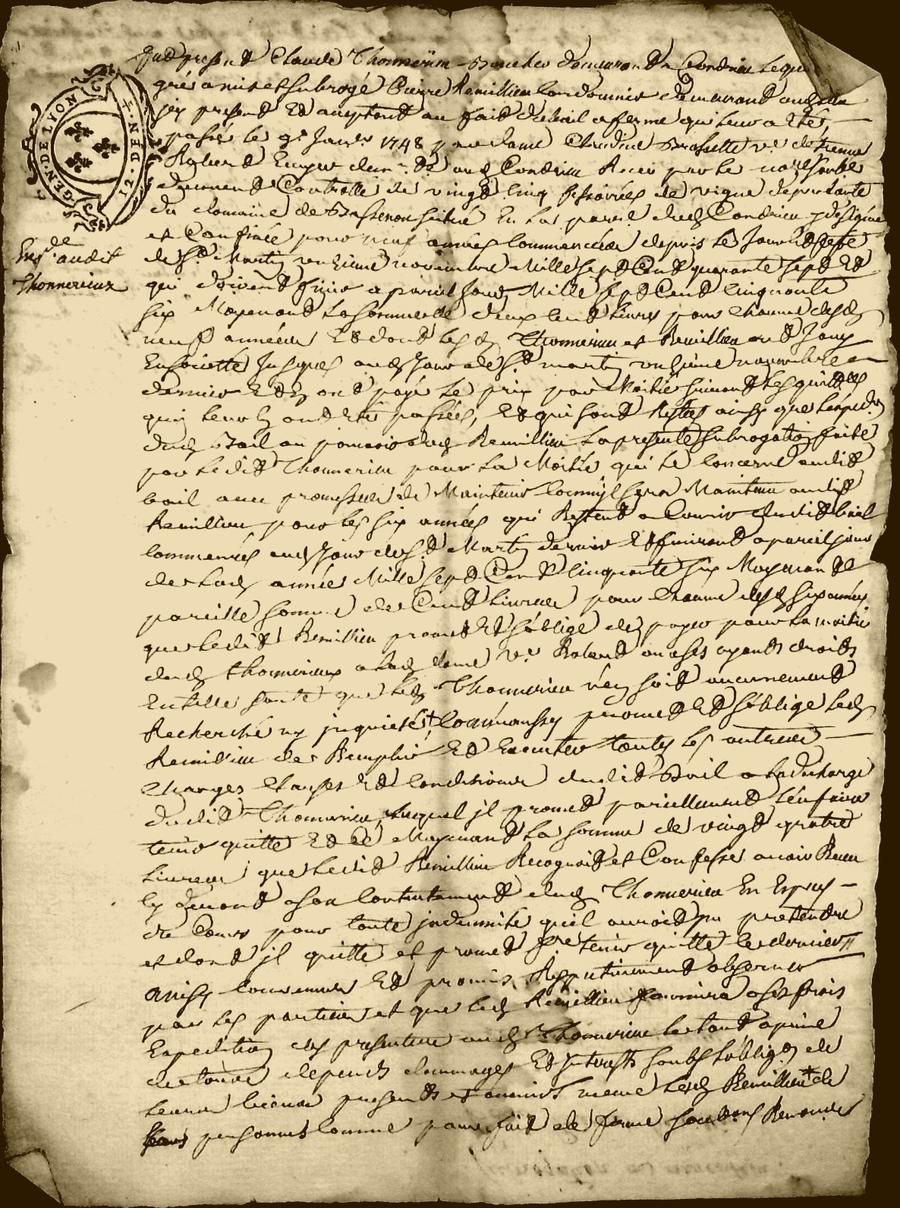 GEN·DE·LYON
12·DEN
Exp.de audit
Thonnerieux
fut present Claude Thonnerieu Boucher demeurant a Condrieu lequel
gré a mis et subrogé Pierre Remillieu Cordonnier demeurant audit
icy present Et acceptant au fait du bail a ferme qui leur a eté
passé le 9e Janv.r 1748 par dame Claudine v.e de
Condrieu Receu par le no.re soubs.é
Controllé de vingt cinq de vigne dependante
du domaine de située En la parroisse dud. Condrieu
et Confinée pour neuf années Commencées depuis le Jour Et fete
de S.t Martin onzieme novembre Mille Sept Cent quarante Sept Et
qui doivent finir a pareil Jour Mille Sept Cent Cinquante
Six Moyenant La Somme de deux Cent Livres pour chacune desd.
neuf années Et dont lesd. Thonnerieu et Remillieu ont Jouy
Ensemble Jusques aud. Jour de S.t martin onzieme novembre
dernier Et En ont payé Le prix par Moitié suivant Les quittances
qui leur En ont Eté passées, Et qui sont Restées ainsy que
dud. Bail au pouvoir dud. Remillieu La presente Subrogation faite
par Ledit Thonnerieu pour La Moitié qui Le Concerne audit
bail avec promesse de Maintenir Comme il sera Maintenu audit
Remillieu pour les six années qui Restent a Courir dudit bail
Commencées aud. Jour de S.t Martin dernier Et finiront a pareil jour
de lad. année Mille Sept Cent Cinquante six Moyenant
pareille Somme de Cent Livres pour chacune desd. six années
que Ledit Remillieu promet Et s'oblige de payer pour La moitié
dud. Thonnerieux a lad. dame v.e ou a ses ayants droits
En telle sorte que Led. Thonnerieu n'en soit aucunement
Recherché ny inquieté Comm'aussy promet Et s'oblige Led.
Remillieu de Remplir Et Executer toutes les autres
charges Clauses Et Conditions dudit Bail a La decharge
dudit Thonnerieu, Lequel il promet pareillement d'En faire
tenir quitte Et ce Moyenant La Somme de vingt quatre
Livres que Ledit Remillieu Recognoit et Confesse avoir Receu
cy devant a son Contentement dud. Thonnerieu En Especes
de Cours pour toute indemnité qu'il auroit pu pretendre
et dont il quitte et promet faire tenir quitte le dernier
ainsy Convenu Et promis Respectivement observer
par les parties et que Led. Remillieu fournira a ses frais
Expedition des presentes aud. Thonnerieu le tout a peine
de tous depends dommages Et interests soubs l'oblig.on de
Leurs biens presents et avenirs meme Led. Remillieu de
sa personne comme pour fait de ferme soubs Renonc.